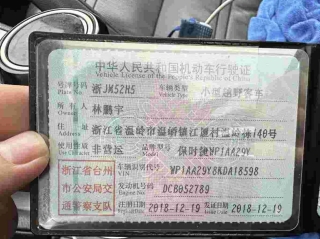 中华人民共和国机动车行驶证
Vehicle License of the People's Republic of China
号牌号码 浙JM52H5 车辆类型 小型越野客车
Plate No. Vehicle Type
所有人 林鹏宇
Owner
住址 浙江省温岭市温峤镇江厦村温岭珠140号
Address
使用性质 非营运 品牌型号 保时捷WP1AA29Y
Use Character Model
浙江省台州 车辆识别代号 WP1AA29Y8KDA18598
VIN
市公安局交 发动机号码 DCB052789
Engine No.
通警察支队 注册日期 2018-12-19 发证日期 2018-12-19